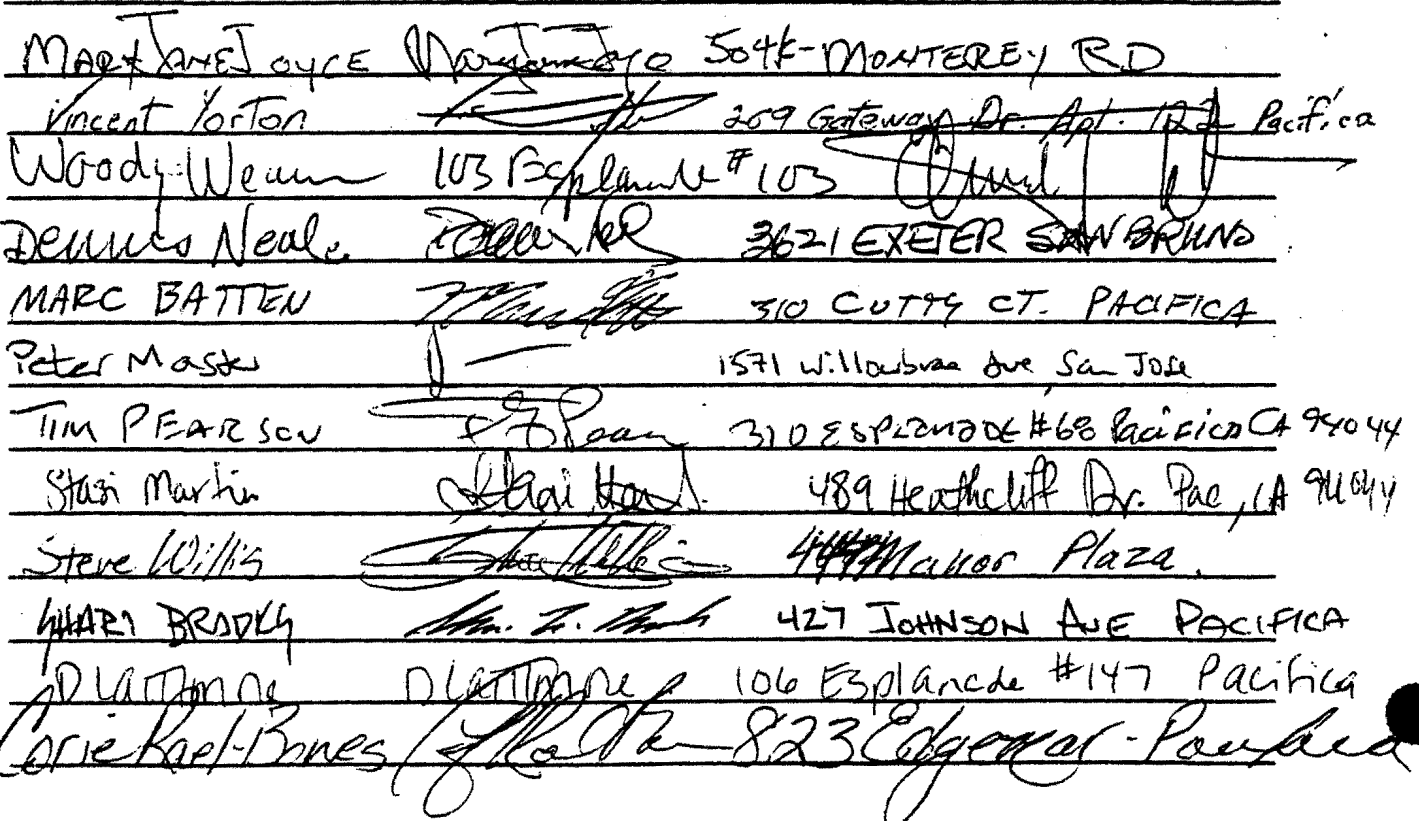 MARY JANE JOYCE Mary Jane Joyce 504k- MONTEREY RD
Vincent Yorton 269 Gateway Dr. Apt. 122 Pacifica
Woody 103 Esplanade #103
Dennis Neale 3621 EXETER SAN BRUNO
MARC BATTEN 310 CUTTY CT. PACIFICA
Peter Master 1571 Willowbrae Ave, San Jose
TIM PEARSON 310 ESPLANADE #68 Pacifica CA 94044
Stasi Martin 489 Heathcliff Dr. Pac, CA 94044
Steve Willis Manor Plaza.
SHARI BROOKS 427 JOHNSON AVE PACIFICA
106 Esplanade #147 Pacifica
Corie Rael-Bones 823 Edgemar - Pacifica